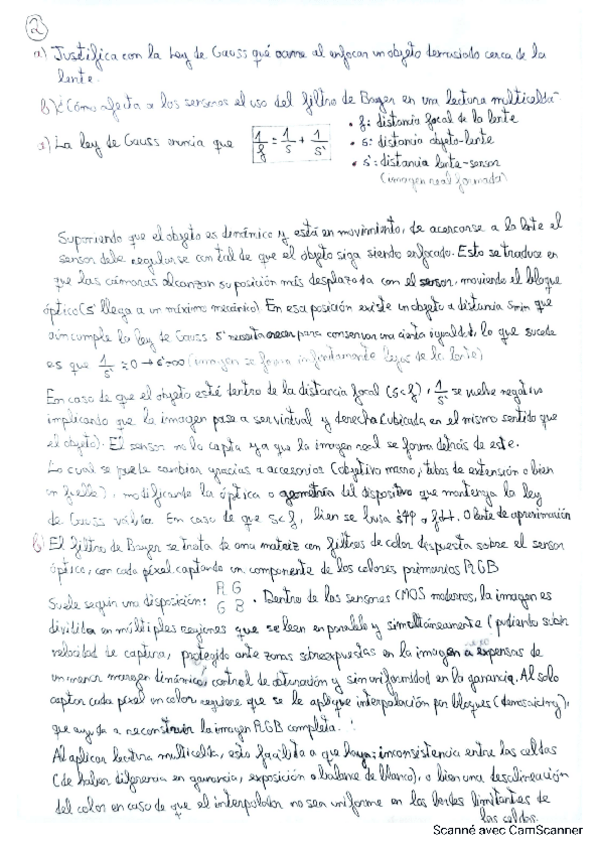 2
a) Justifica con la Ley de Gauss qué ocurre al enfocar un objeto demasiado cerca de la
lente.
b) ¿Cómo afecta a los sensores el uso del filtro de Bayer en una lectura multicelda?
a) La ley de Gauss enuncia que 1/f = 1/s + 1/s'
• f: distancia focal de la lente
• s: distancia objeto-lente
• s': distancia lente-sensor
(imagen real formada)
Suponiendo que el objeto es dinámico y está en movimiento, de acercarse a la lente el
sensor debe regularse con tal de que el objeto siga siendo enfocado. Esto se traduce en
que las cámaras alcanzan su posición más desplazada con el sensor, moviendo el bloque
óptico (s' llega a un máximo mecánico). En esa posición existe un objeto a distancia smin que
aún cumple la ley de Gauss s' necesita crecer para conservar una cierta igualdad, lo que sucede
es que 1/s' ≈ 0 → s' = ∞ (imagen se forma infinitamente lejos de la lente)
En caso de que el objeto esté dentro de la distancia focal (s<f), 1/s' se vuelve negativo
implicando que la imagen pase a ser virtual y derecha (ubicada en el mismo sentido que
el objeto). El sensor no lo capta ya que la imagen real se forma detrás de este.
Lo cual se puede cambiar gracias a accesorios (objetivo macro, tubos de extensión o bien
un fuelle), modificando la óptica o geometría del dispositivo que mantenga la ley
de Gauss válida. En caso de que s<f, bien se busca s↑↑ o f↓↓. O lente de aproximación
b) El filtro de Bayer se trata de una matriz con filtros de color dispuesta sobre el sensor
óptico, con cada píxel captando un componente de los colores primarios RGB
Suele seguir una disposición: R G
G B . Dentro de los sensores CMOS modernos, la imagen es
dividida en múltiples regiones que se leen en paralelo y simultáneamente (pudiendo subir
velocidad de captura, protegido ante zonas sobreexpuestas en la imagen a expensas de
un menor margen dinámico, control de obturación y sin uniformidad en la ganancia. Al solo
captar cada píxel un color, requiere que se le aplique interpolación por bloques (demosaicing),
que ayuda a reconstruir la imagen RGB completa.
Al aplicar lectura multicelda, esto facilita a que haya: inconsistencia entre las celdas
(de haber diferencia en ganancia, exposición o balance de blanco), o bien una desalineación
del color en caso de que el interpolador no sea uniforme en los bordes limitantes de
las celdas.
Scanné avec CamScanner